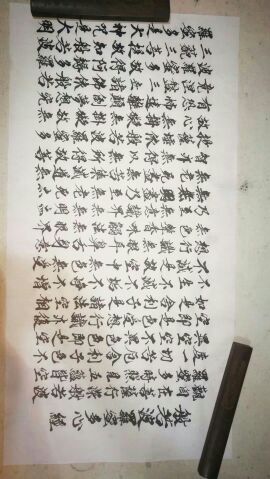 般若波羅蜜多心經
觀自在菩薩行深般若波
羅蜜多時照見五蘊皆空
度一切苦厄舍利子色不
異空空不異色色即是空
空即是色受想行識亦復
如是舍利子是諸法空相
不生不滅不垢不淨不增
不減是故空中無色無受
想行識無眼耳鼻舌身意
無色聲香味觸法無眼界
乃至無意識界無無明亦
無無明盡乃至無老死亦
無老死盡無苦集滅道無
智亦無得以無所得故菩
提薩埵依般若波羅蜜多
故心無罣礙無罣礙故無
有恐怖遠離顛倒夢想究
竟涅槃三世諸佛依般若
波羅蜜多故得阿耨多羅
三藐三菩提故知般若波
羅蜜多是大神咒是大明